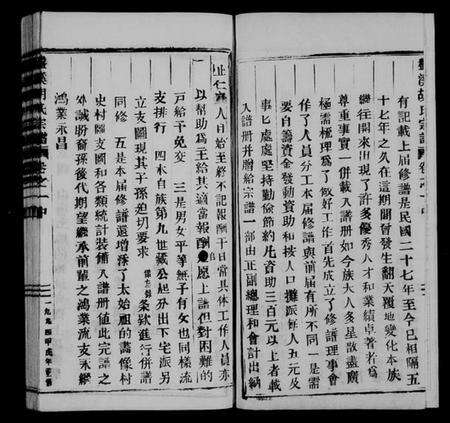 有記載上屆修譜是民國二十七年至今已相隔五
十七年之久在這期間曾發生翻天覆地變化本族
幾往開來出現了許多優秀人才和業績卓著者為
尊重事實一併載入譜冊如今族大人多星散盡廣
極需梳理為了做好工作首先成立了修譜理事會
作了人員分工本屆修譜與前屆有所不同一是需
要自籌資金發動資助和按人口攤派每人五元及
事匕處處堅持勤儉節約凡資助三百元以上者載
入譜冊并贈給宗譜一部由正副總理和會計出納
人日始至終不記報酬千日當具體工作人員亦
以幫助為主給其適當報酬 愿上譜但對困難的
戶給予免交 三是男女平等無子有女也同樣流
支掛行 四本自族第九世藏公起分出下宅派另
立支圖現其子孫迫切要求 條款進行併譜
同修 五是本屆修譜還增添了太始祖的舊像村
史村匯支圖和各類統計裝備入譜冊值此完譜之
誠盼裔孫後代期望繼承前輩之鴻業流支永繼
鴻業永昌
一九九四甲戌年